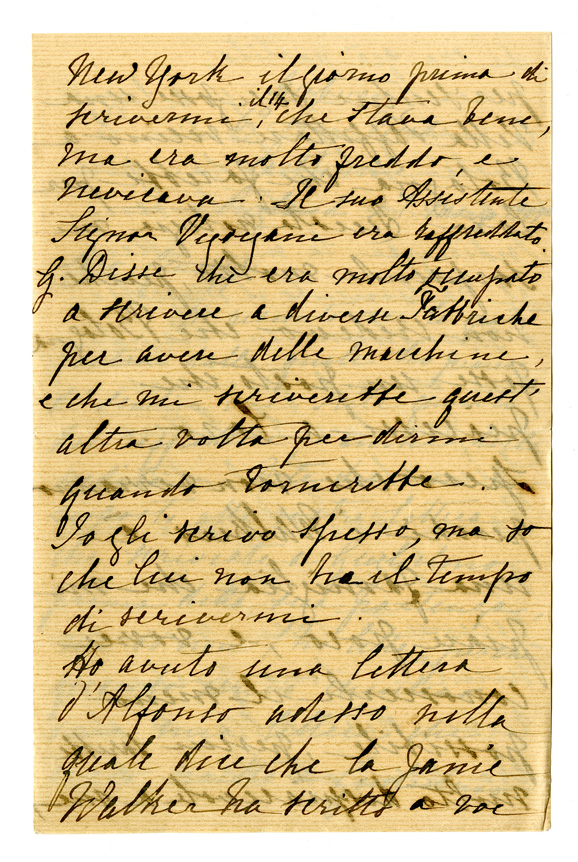 New York il giorno prima di
scrivermi, il 14, che stava bene,
ma era molto freddo, e
nevicava. Il suo Assistente
Signor Vigogani era raffreddato.
G. Disse che era molto occupato
a scrivere a diverse Fabbriche
per avere delle macchine,
e che mi scriverebbe quest'
altra volta per dirmi
quando tornerebbe.
Io gli scrivo spesso, ma so
che lui non ha il tempo
di scrivermi.
Ho avuto una lettera
d'Alfonso adesso nella
quale dice che la Janie
Walker ha scritto a voi